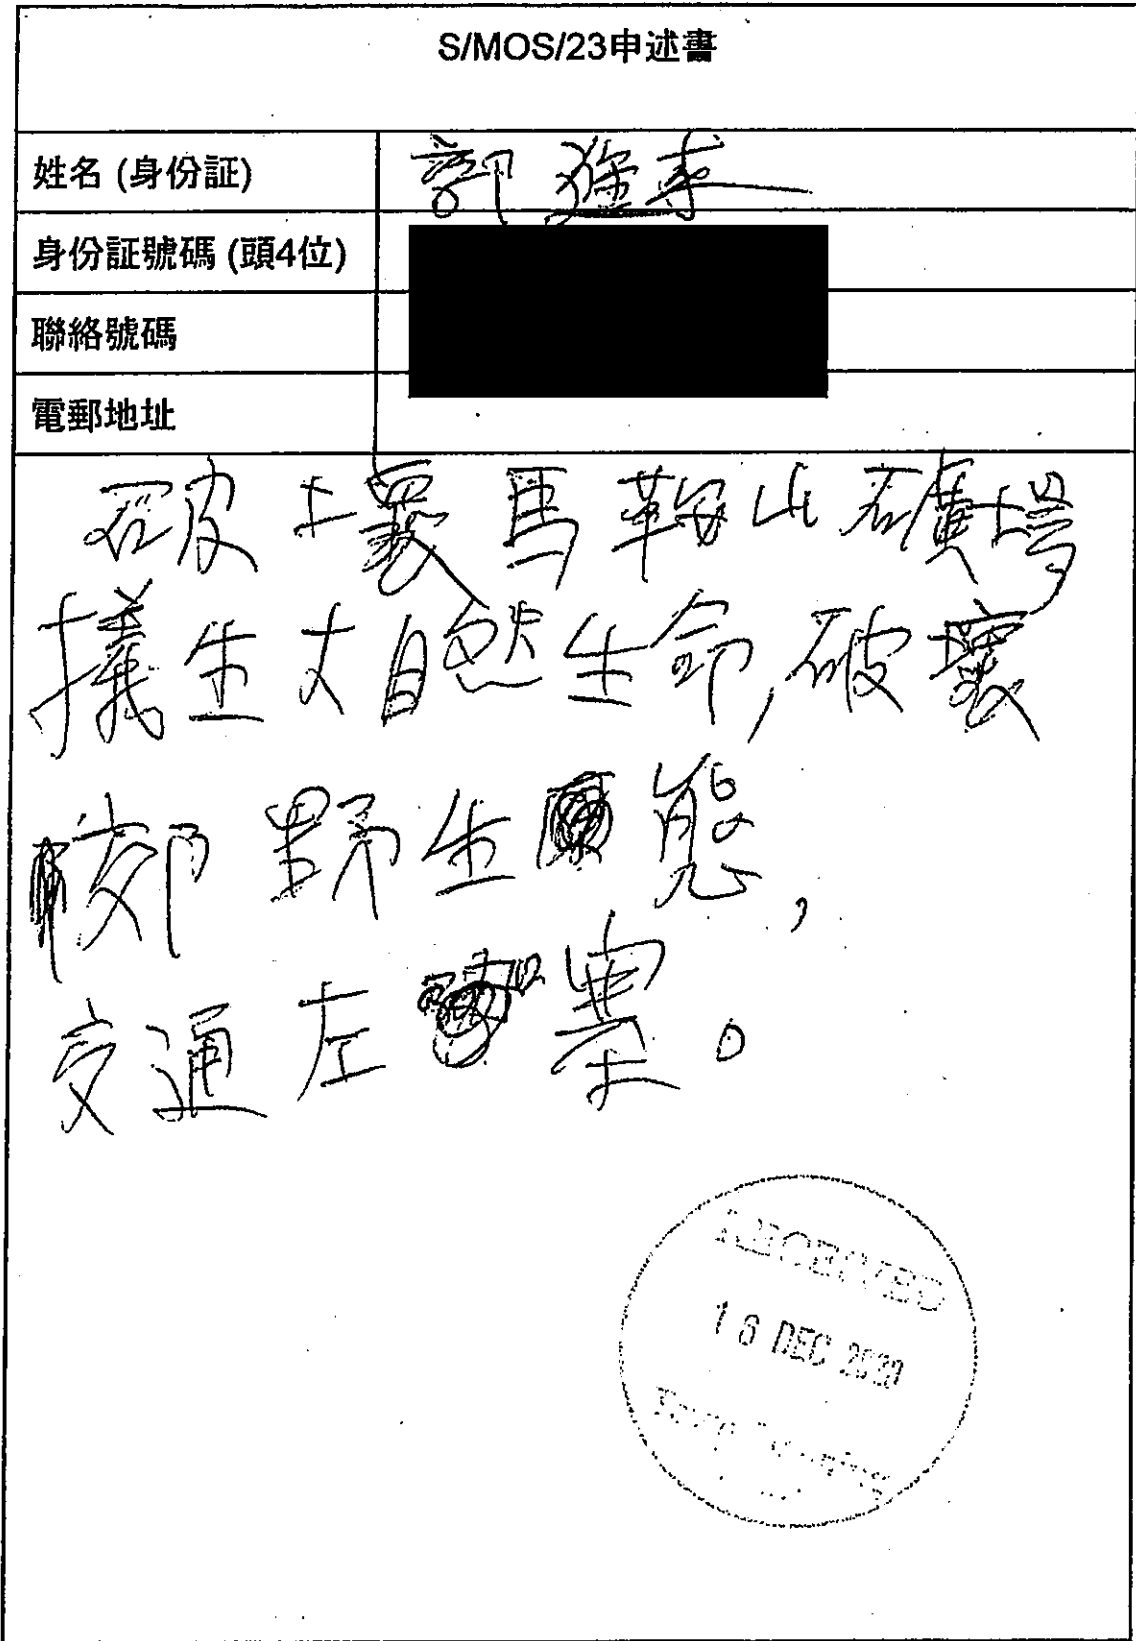 S/MOS/23申述書
姓名 (身份証)
身份証號碼 (頭4位)
聯絡號碼
電郵地址
破壞馬鞍山礦場
犧生大自然生命,破壞
郊野生態,
交通左塞。
RECEIVED
DEC
Town Planning